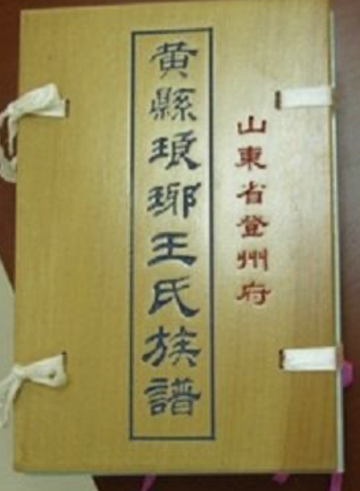 山東省登州府
黄縣琅琊王氏族譜